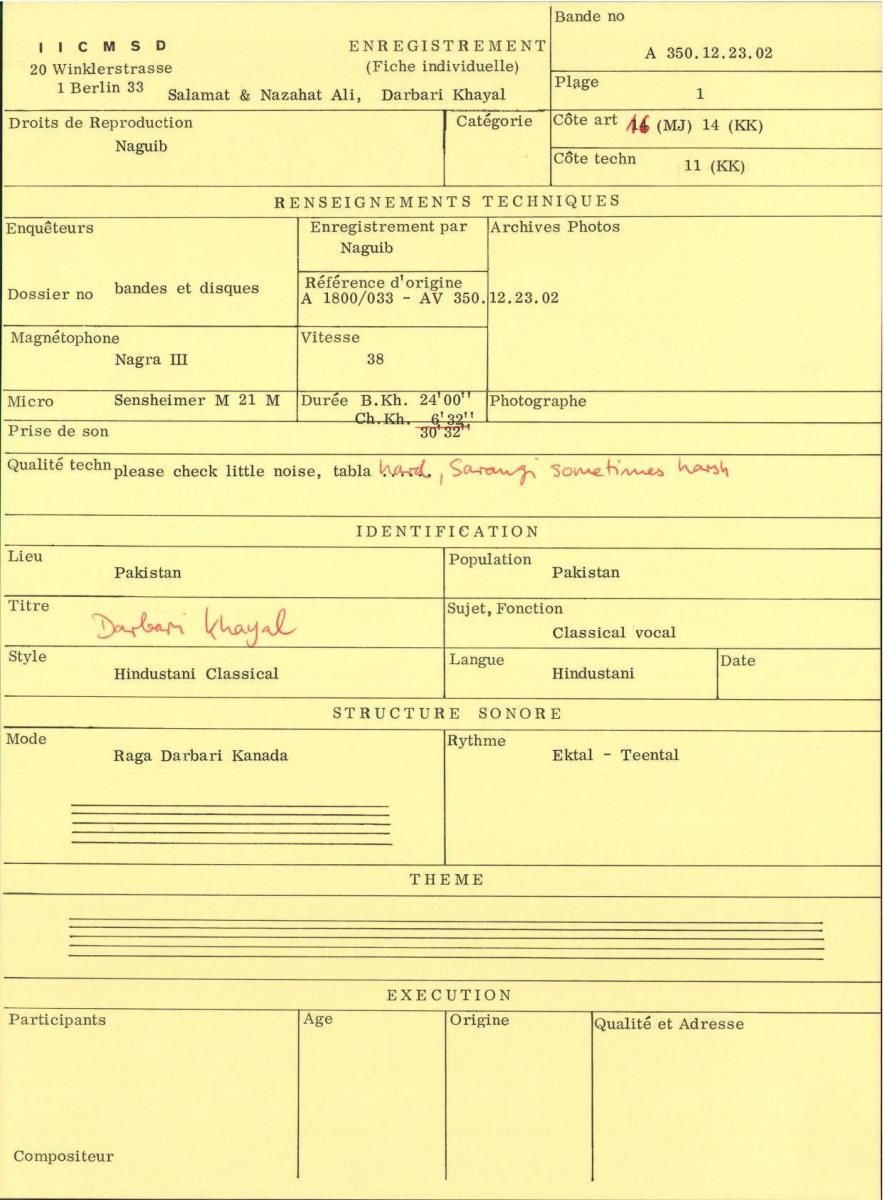 IICMSD
20 Winklerstrasse
1 Berlin 33
ENREGISTREMENT
(Fiche individuelle)
Salamat & Nazahat Ali, Darbari Khayal
Bande no
A 350.12.23.02
Plage
1
Droits de Reproduction
Naguib
Catégorie
Côte art 16 (MJ) 14 (KK)
Côte techn 11 (KK)
RENSEIGNEMENTS TECHNIQUES
Enquêteurs
Enregistrement par
Naguib
Archives Photos
Dossier no bandes et disques
Référence d'origine
A 1800/033 - AV 350.12.23.02
Magnétophone
Nagra III
Vitesse
38
Micro Sensheimer M 21 M
Durée B.Kh. 24'00''
Ch.Kh. 6'32''
30'32''
Photographe
Prise de son
Qualité techn please check little noise, tabla hard, Sarangi sometimes harsh
IDENTIFICATION
Lieu
Pakistan
Population
Pakistan
Titre
Darbari Khayal
Sujet, Fonction
Classical vocal
Style
Hindustani Classical
Langue
Hindustani
Date
STRUCTURE SONORE
Mode
Raga Darbari Kanada
Rythme
Ektal - Teental
THEME
EXECUTION
Participants
Age
Origine
Qualité et Adresse
Compositeur